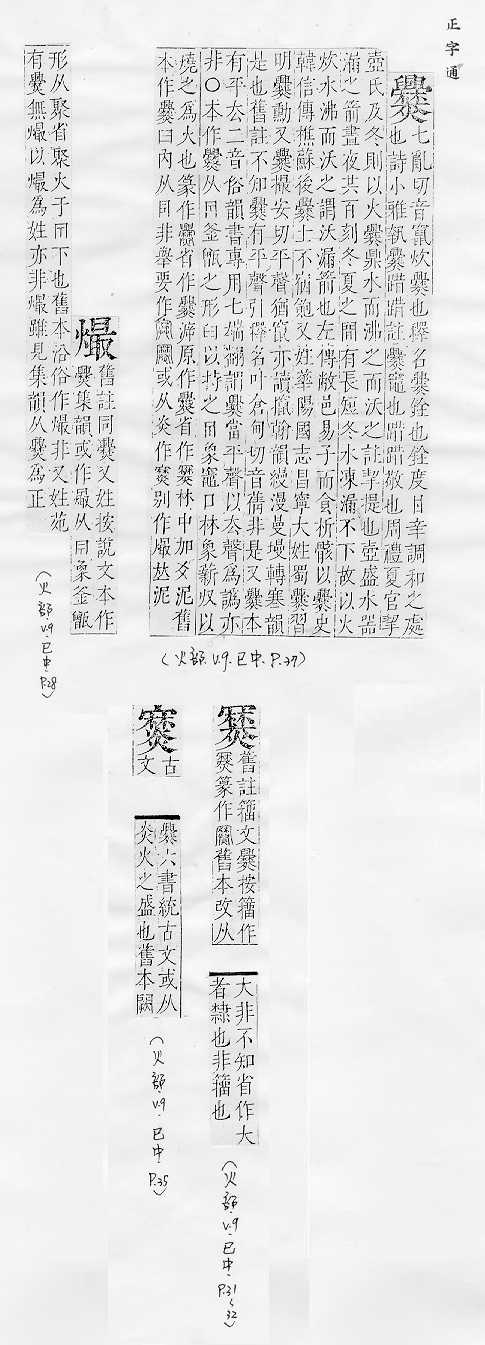 正字通
爨
七亂切音竄炊爨也釋名爨銓也銓度甘辛調和之處
也詩小雅執爨踖踖註爨竈也踖踖敬也周禮夏官挈
壺氏及冬則以火爨鼎水而沸之而沃之註挈提也壺盛水器
漏之箭晝夜共百刻冬夏之間有長短冬水凍漏不下故以火
炊水沸而沃之謂沃漏箭也左傳敝邑易子而食析骸以爨史
韓信傳樵蘇後爨士不宿飽又姓華陽國志昌寧大姓蜀爨習
明爨勳又爨攛安切平聲猶竄亦讀攛翰韻縵漫曼墁轉寒韻
是也舊註不知爨有平聲引釋名叶倉甸切音倩非是又爨本
有平去二音俗韻書專用七端翻謂爨當平聲以去聲為譌亦
非○本作爨从𦥑釜甑之形臼以持之冂象竈口林象薪𠬞以
燒之為火也篆作爨省作爨㴑原作爨省作爨林中加爻泥舊
本作爨曰內从同非舉要作
或从炎作㸑別作熶
泥
熶
舊註同爨又姓按說文本作
爨集韻或作熶从𦥑象釜甑
形从聚省聚火于冂下也舊本沿俗作熶非又姓苑
有爨無熶以熶為姓亦非熶雖見集韻从爨為正
(火部.v.9.巳中.P.37)
(火部.v.9.巳中.P.28)
舊註籀文爨按籀作
爨篆作
舊本改从
大非不知省作大
者隸也非籀也
(火部.v.9.巳中.P.31~32)
古文
爨六書統古文或从
炎火之盛也舊本闕
(火部.v.9.巳中.P.35)